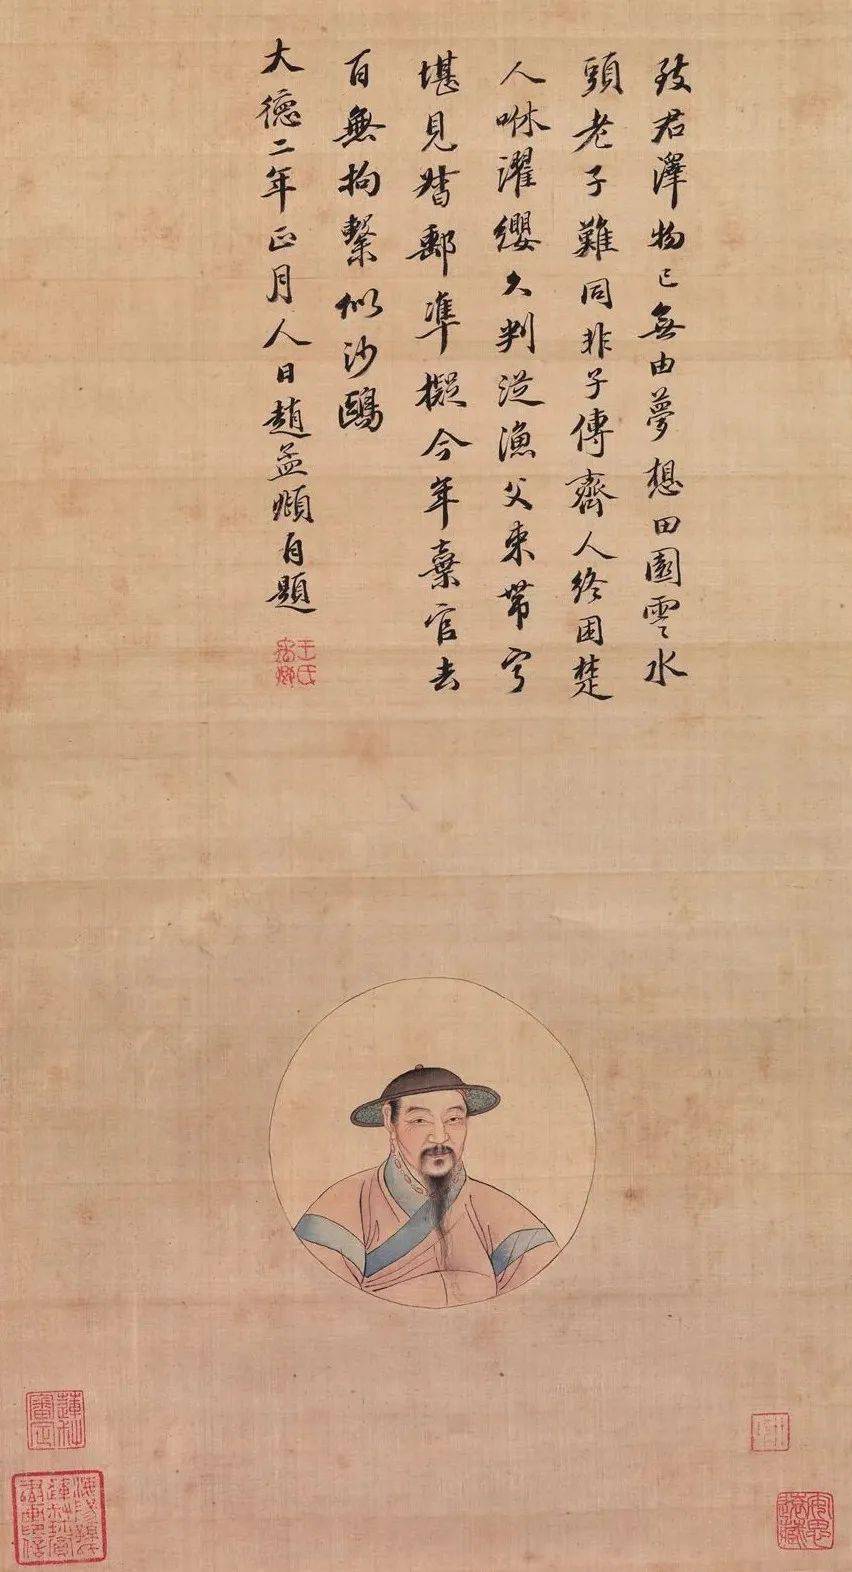 致君澤物已無由夢想田園霅水
頭老子難同非子傳齊人終困楚
人咻濯纓久判從漁父束帶寧
堪見督郵準擬今年棄官去
百無拘繫似沙鷗
大德二年正月人日趙孟頫自題
王氏
安思遠藏
蓮樵審定